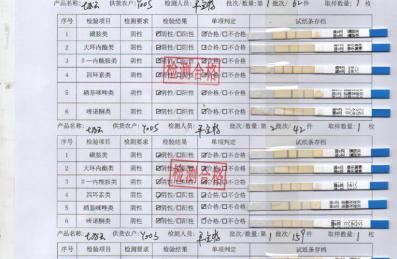 产品名称: 供货农户: Y005 检测人员: 批次/数量:第 1 批/ 62 件 取样数量: 1 枚
序号 检验项目 检测要求 检验结果 单项判定 试纸条存档
1 磺胺类 阴性 ☑阴性/□阳性 ☑合格/□不合格
2 大环内酯类 阴性 ☑阴性/□阳性 ☑合格/□不合格
3 β一内酰胺类 阴性 ☑阴性/□阳性 ☑合格/□不合格
4 四环素类 阴性 ☑阴性/□阳性 ☑合格/□不合格
5 硝基咪唑类 阴性 ☑阴性/□阳性 ☑合格/□不合格
6 喹诺酮类 阴性 ☑阴性/□阳性 ☑合格/□不合格
检测合格
产品名称: 供货农户: Y005 检测人员: 批次/数量:第 2 批次/ 42 件 取样数量: 1 枚
序号 检验项目 检测要求 检验结果 单项判定 试纸条存档
1 磺胺类 阴性 ☑阴性/□阳性 ☑合格/□不合格
2 大环内酯类 阴性 ☑阴性/□阳性 ☑合格/□不合格
3 β一内酰胺类 阴性 ☑阴性/□阳性 ☑合格/□不合格
4 四环素类 阴性 ☑阴性/□阳性 ☑合格/□不合格
5 硝基咪唑类 阴性 ☑阴性/□阳性 ☑合格/□不合格
6 喹诺酮类 阴性 ☑阴性/□阳性 ☑合格/□不合格
检测合格
产品名称: 供货农户: Y005 检测人员: 批次/数量:第 1 批次/ 159 件 取样数量: 1 枚
序号 检验项目 检测要求 检验结果 单项判定 试纸条存档
1 磺胺类 阴性 ☑阴性/□阳性 ☑合格/□不合格